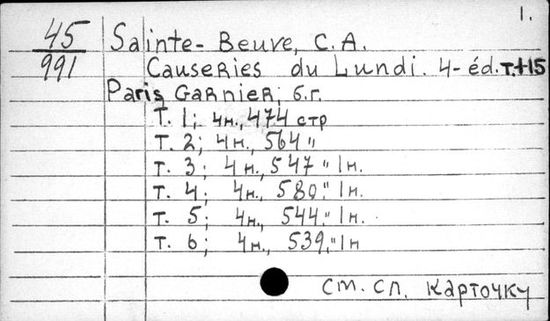 1.
45 Sainte-Beuve, C.A.
991 Causeries du Lundi. 4-éd. т.1-15
Paris Garnier, б.г.
Т. 1; 4н., 474 стр
Т. 2; 4н., 564 "
Т. 3; 4н., 547 " 1н.
Т. 4; 4н., 580 " 1н.
Т. 5; 4н., 544 " 1н.
Т. 6; 4н., 539, " 1н
см. сл. карточку